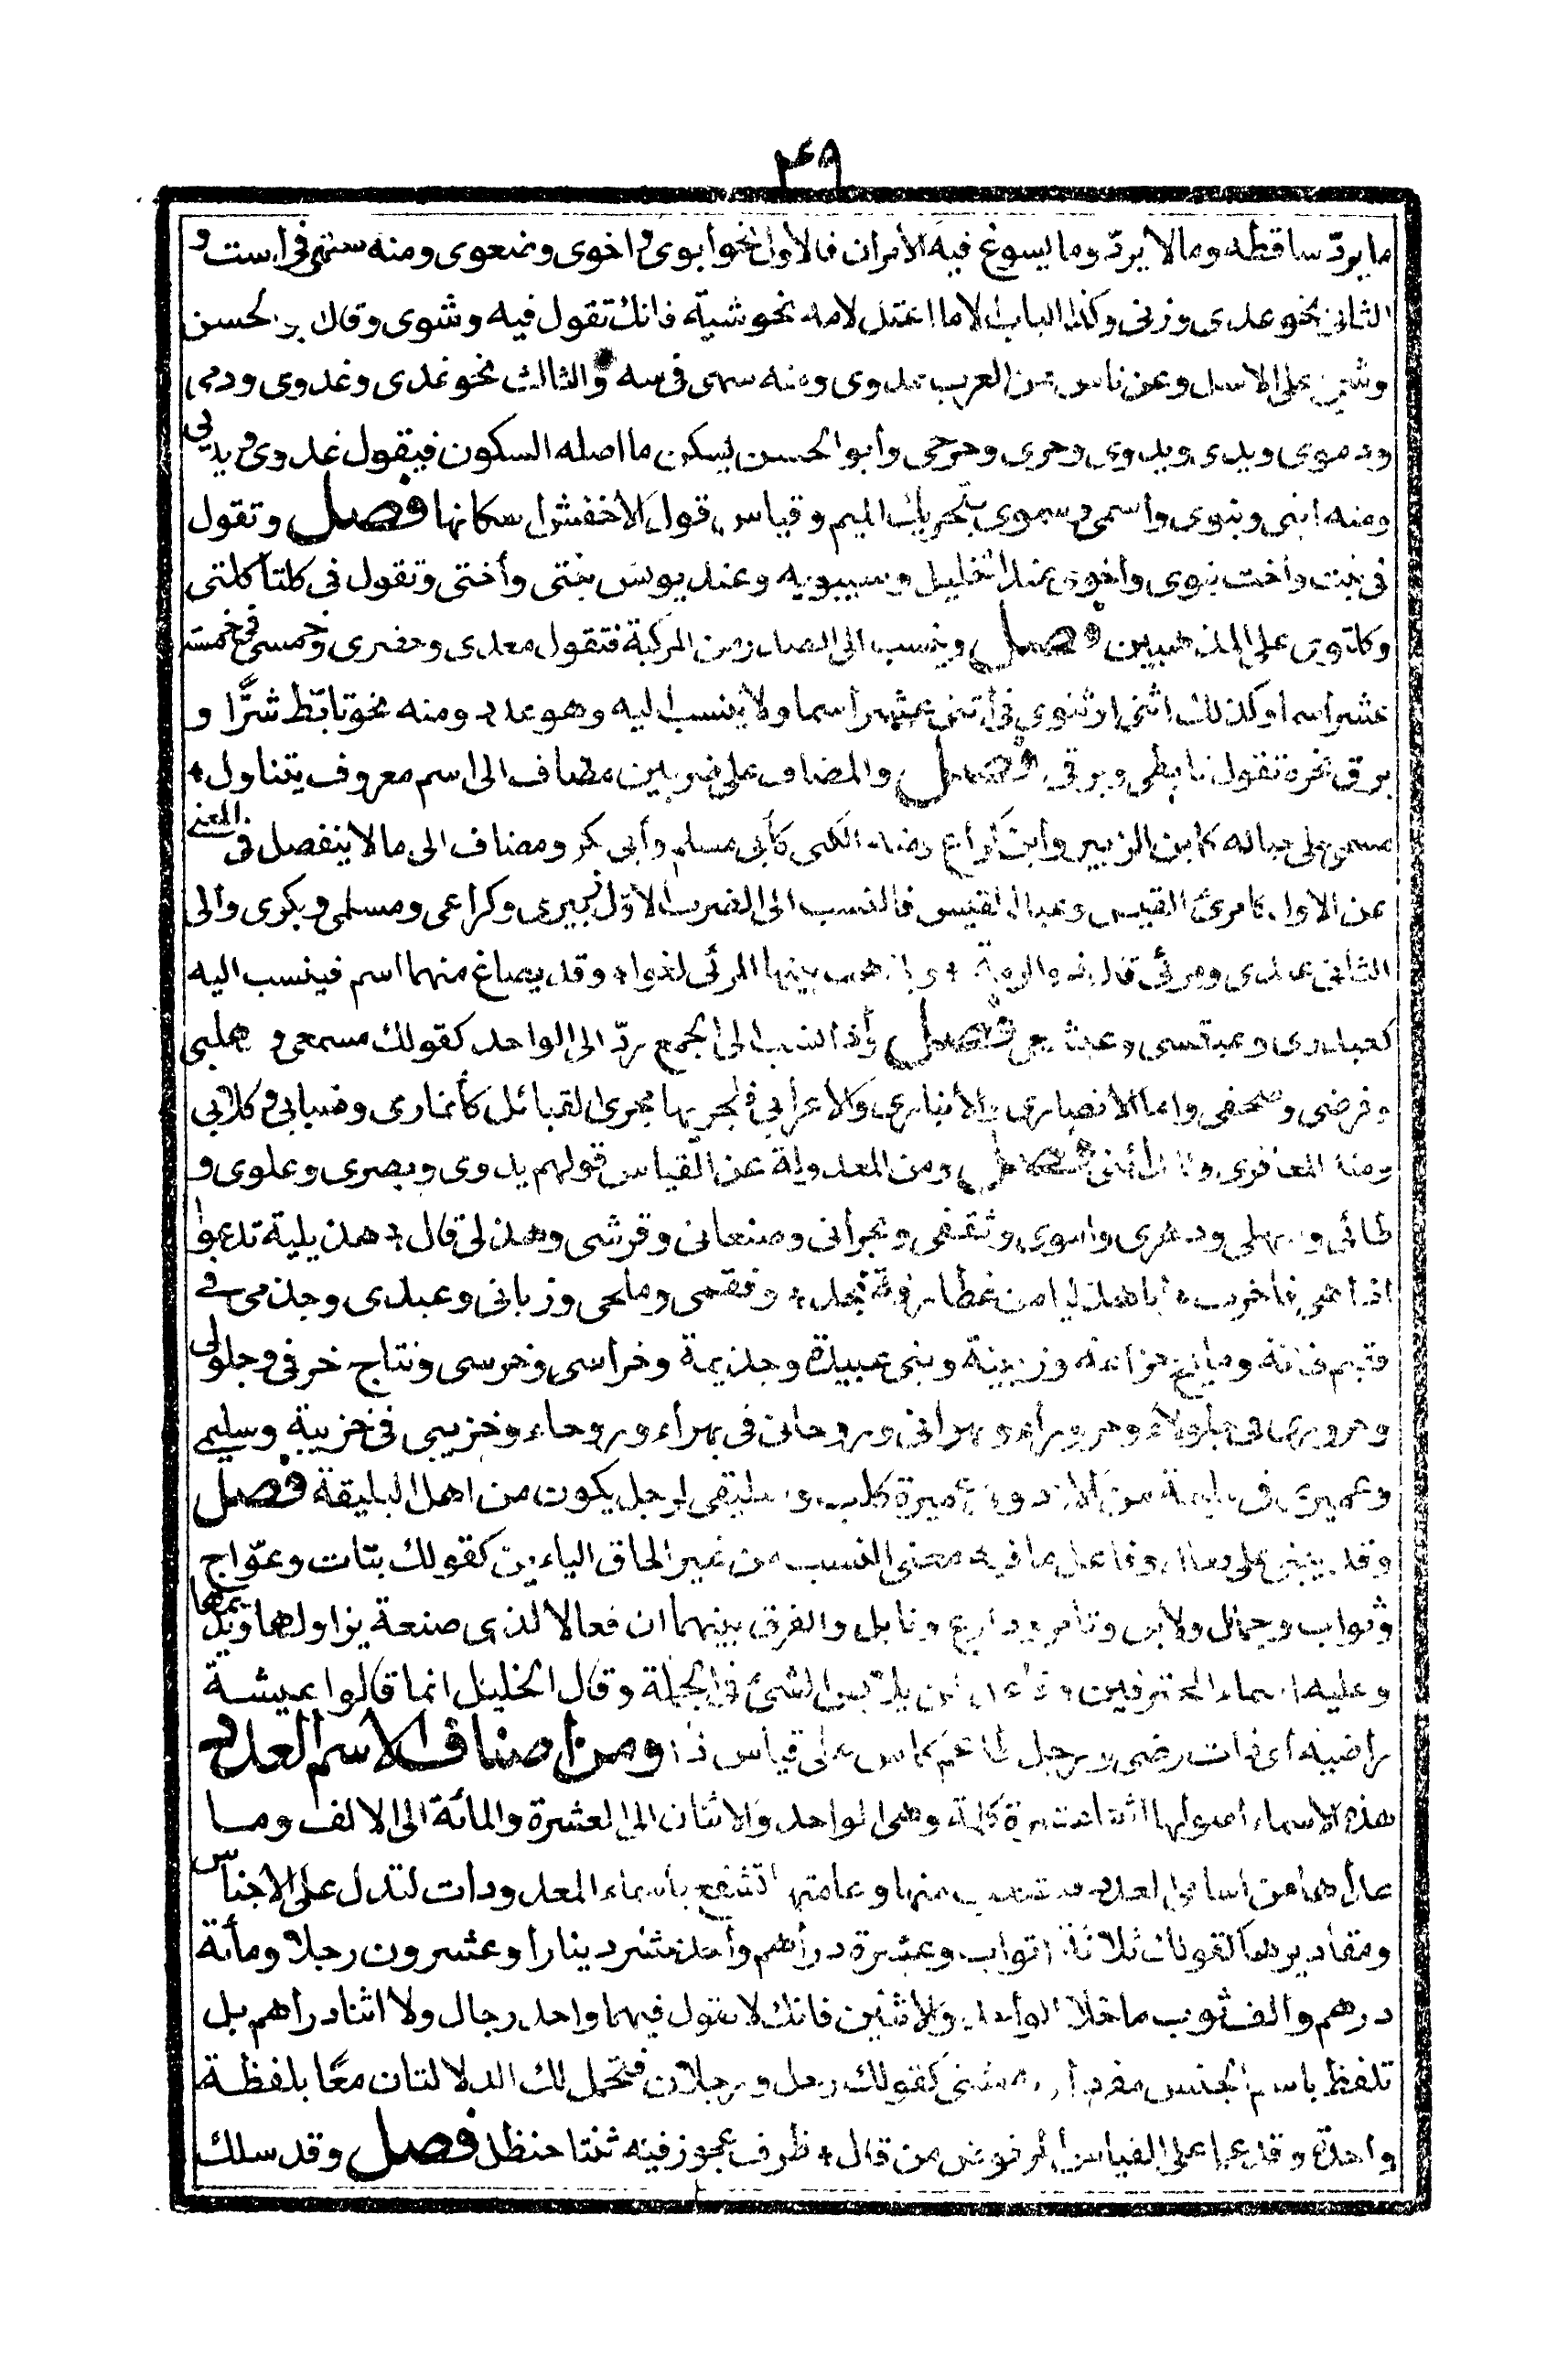 ٤٩
ما يردّ ساقطه ومالا يردّ وما يسوغ فيه الامران فالاول نحو ابوى و اخوى وضعوى ومنه ستهى فى است و
الثانى نحو عدى وزنى وكذا الباب الا ما اعتل لامه نحو شية فانك تقول فيه وشوى وقال ابو الحسن
وشيى على الاصل وعن ناس من العرب عدوى ومنه سهى فى سه والثالث نحو غدى وغدوى ودمى
ودموى ويدى ويدوى وحرى وحرحى وأبو الحسن يسكن ما اصله السكون فيقول غدوى و يديى
ومنه ابنى وبنوى واسمى وسموى بتحريك الميم وقياس قول الاخفش اسكانها فصل وتقول
فى بنت وأخت بنوى واخوى عند الخليل وسيبويه وعند يونس بنتى وأختى وتقول فى كلتا كلتى
وكلتوى على المذهبين فصل وينسب الى الصدر من المركبة فتقول معدى وحضرى وخمسى فى خمسة
عشر اسما وكذلك اثنى او ثنوى فى اثنى عشر اسما ولا ينسب اليه وهو عدد ومنه نحو تابّط شرًّا و
برق نحره تقول تابطى وبرقى فصل والمضاف على ضربين مضاف الى اسم معروف يتناول
مسمى على حياله كابن الزبير وابن كراع ومنه الكنى كأبى مسلم وأبى بكر ومضاف الى مالا ينفصل فى المعنى
عن الاول كامرئ القيس وعبد القيس فالنسب الى الضرب الاوّل زبيرى وكراعى ومسلمى وبكرى والى
الثانى عبدى ومرئى قال ذو الرمة ويذهب بينها المرئى لغوا وقد يصاغ منهما اسم فينسب اليه
كعبدرى وعبقسى وعبشمى فصل وأذا نسب الى الجمع ردّ الى الواحد كقولك مسمعى و مهلبى
وفرضى وصحفى واما الانصارى والانبارى والاعرابى فلجريها مجرى القبائل كأنمارى وضبابى و كلابى
ومنه المعافرى والمدائنى فصل ومن المعدولة عن القياس قولهم بدوى وبصرى وعلوى و
طائى وسهلى ودهرى واموى وثقفى وبحرانى وصنعانى وقرشى وهذلى قال هذيلية تدعوا
اذا هى فاخرت أبا هذليا من غطارفة نجد وفقمى وملحى وزبانى وعبدى وجذمى فى
فقيم كنانة ومليح خزاعة وزبينة وبنى عبيدة وجذيمة وخراسى وخرسى ونتاج خرفى وجلولى
وحرورى فى جلولاء وحروراء وبهرانى وروحانى فى بهراء وروحاء وخزيبى فى خزيبة وسليمى
وعميرى فى سليمة من الازد وفى عميرة كلب وسليقى لرجل يكون من اهل السليقة فصل
وقد يبنى على فعال وفاعل ما فيه معنى النسب من غير الحاق الياءين كقولك بتات وعوّاج
وثواب وجمال ولابن وتامر ودارع ونابل والفرق بينهما ان فعالا لذى صنعة يزاولها ويديمها
وعليه اسماء المحترفين وفاعل لمن يلابس الشئ فى الجملة وقال الخليل انما قالوا عيشة
راضية اى ذات رضى ورجل طاعم كاس على قياس ذا ومن أصناف الاسم العدد
هذه الاسماء اصولها اثنتا عشرة كلمة وهى الواحد والاثنان الى العشرة والمائة الى الالف وما
عداها من اسامى العدد فمتشعب منها وعامتها تشفع باسماء المعدودات لتدل على الاجناس
ومقاديرها كقولك ثلاثة اثواب وعشرة دراهم وأحد عشر دينارا وعشرون رجلا ومائة
درهم والف ثوب ما خلا الواحد والاثنين فانك لا تقول فيهما واحد رجال ولا اثنا دراهم بل
تلفظ باسم الجنس مفردا او مثنى كقولك رجل ورجلان فتحصل لك الدلالتان معًا بلفظة
واحدة وقد عمل على القياس المرفوض من قال ظرف عجوز فيه ثنتا حنظل فصل وقد سلك